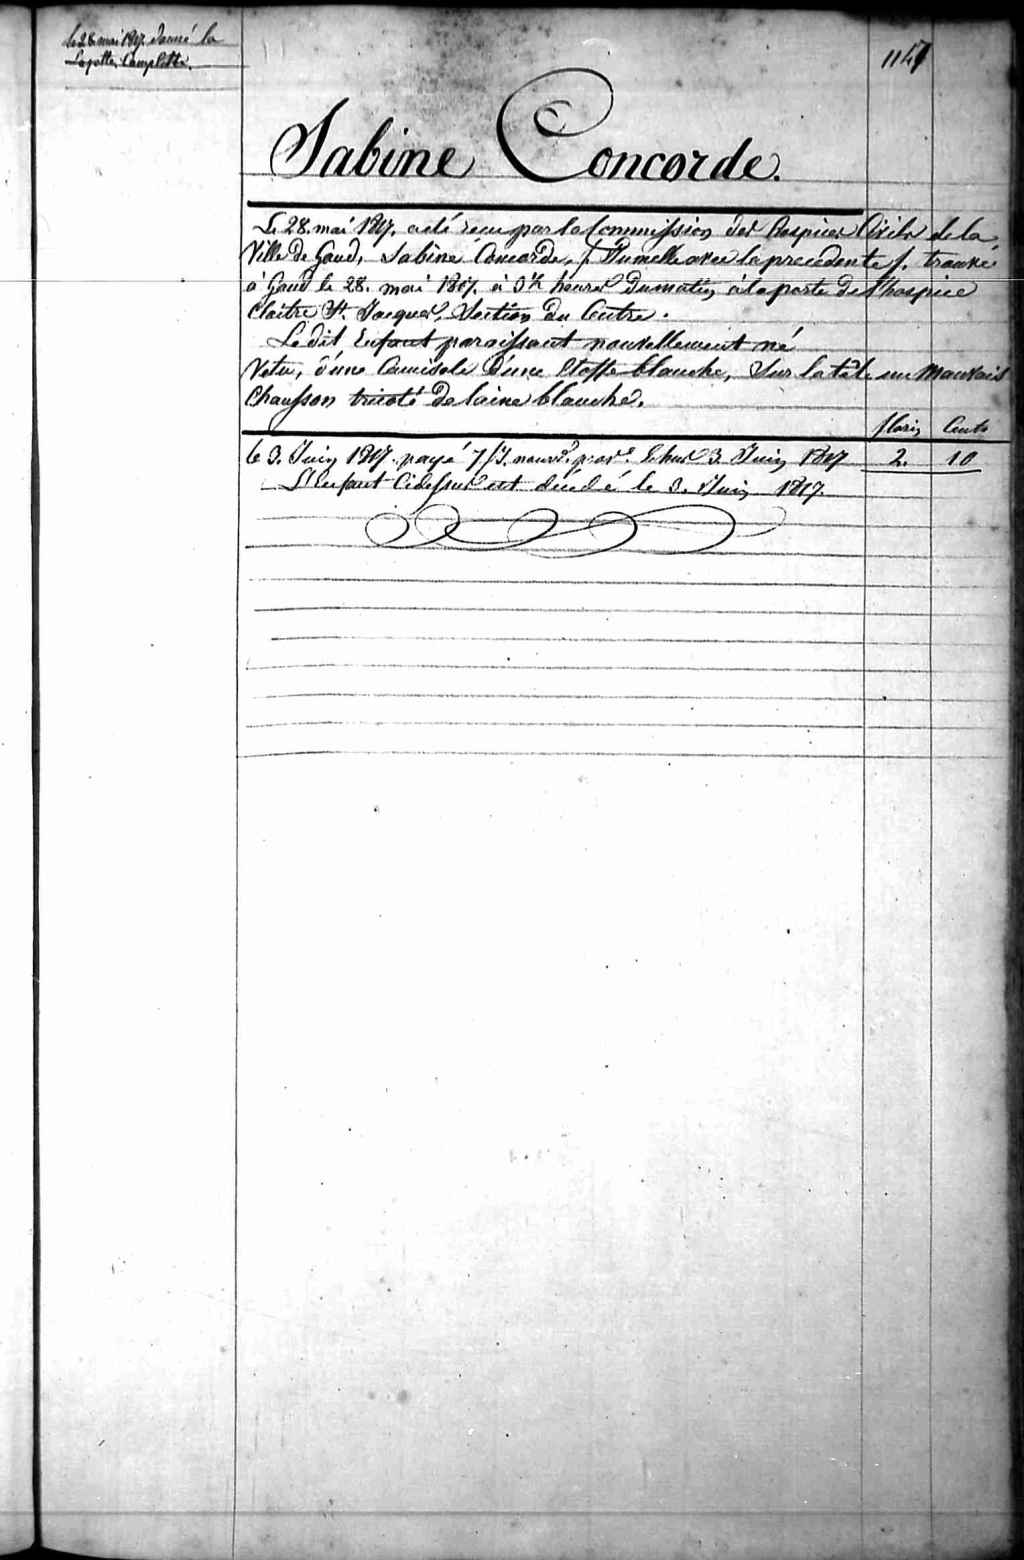 le 28 mai 1817. donné la
Layette Complette.
1147
Sabine Concorde.
Le 28. mai 1817. a été recu par la Commission des hospices Civils de la
Ville de Gand, Sabine Concorde, /: Jumelle avec la precedente :/ trouvé
à Gand le 28. mai 1817. à 3 ½ heures du matin, à la porte de l'hospice
Cloitre St. Jacques, Section du Centre.
Le dit Enfant paraissant nouvellement né
Vetu, d'une Camisole d'une Etoffe blanche, Sur la tête un Mauvais
Chausson tricoté de laine blanche.
florin Cents
le 3. Juin 1817. payé 7/J. nourr. Echus 3 Juin 1817 2. 10
L'Enfant Cidessus est décédé le 3. Juin 1817.